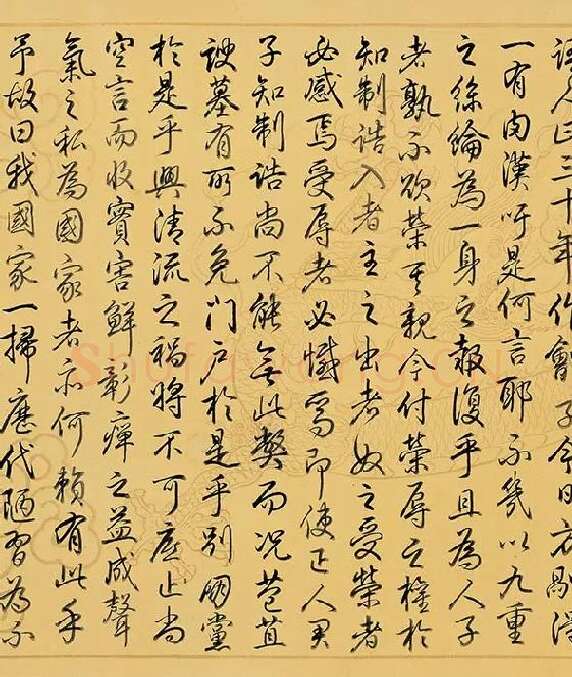 人曰三十年作會子今日方剮得
一有肉漢吁是何言耶不幾以九重
之絲綸為一身之報復乎且為人子
者孰不欲榮其親今付榮辱之權於
知制誥入者主之出者奴之受榮者
必感焉受辱者必憾焉即使正人君
子知制誥尚不能無此獘而況苞苴
諛墓有所不免門戶於是乎別朋黨
於是乎興清流之禍將不可底止尚
空言而收實害鮮彰癉之益成聲
氣之私為國家者亦何賴有此乎
予故曰我國家一掃歷代陋習為不